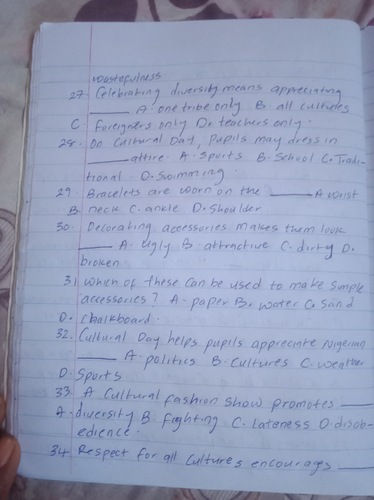 wastefulness
27. Celebrating diversity means appreciating
____ A. one tribe only B. all cultures
C. Foreigners only D. teachers only.
28. On Cultural Day, pupils may dress in
____ attire. A. Sports B. School C. Tradi-
tional D. Swimming.
29. Bracelets are worn on the ____ A wrist
B. neck C. ankle D. Shoulder
30. Decorating accessories makes them look
____ A. Ugly B. attractive C. dirty D.
broken
31 Which of these can be used to make simple
accessories? A. paper B. water C. Sand
D. Chalkboard.
32. Cultural Day helps pupils appreciate Nigerian
____ A. politics B. Cultures C. weather
D. Sports
33. A Cultural fashion show promotes ____
A. diversity B. Fighting C. Lateness D. disob-
edience.
34. Respect for all cultures encourages ____